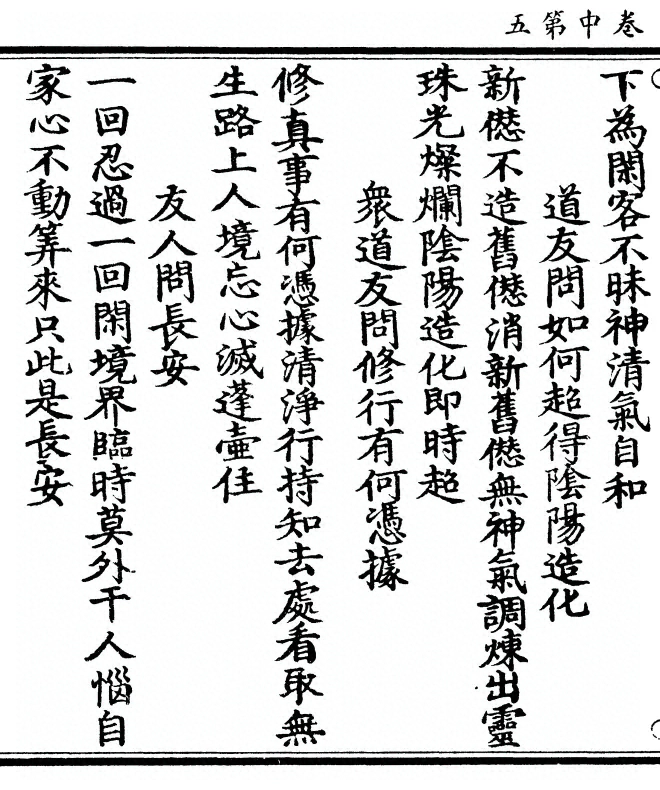 卷中第五
下為閑客不昧神清氣自和
道友問如何超得陰陽造化
新僁不造舊僁消新舊僁無神氣調煉出靈
珠光燦爛陰陽造化即時超
衆道友問修行有何憑據
修真事有何憑據清淨行持知去處看取無
生路上人境忘心滅蓬壺住
友人問長安
一回忍過一回閑境界臨時莫外干人惱自
家心不動筭來只此是長安